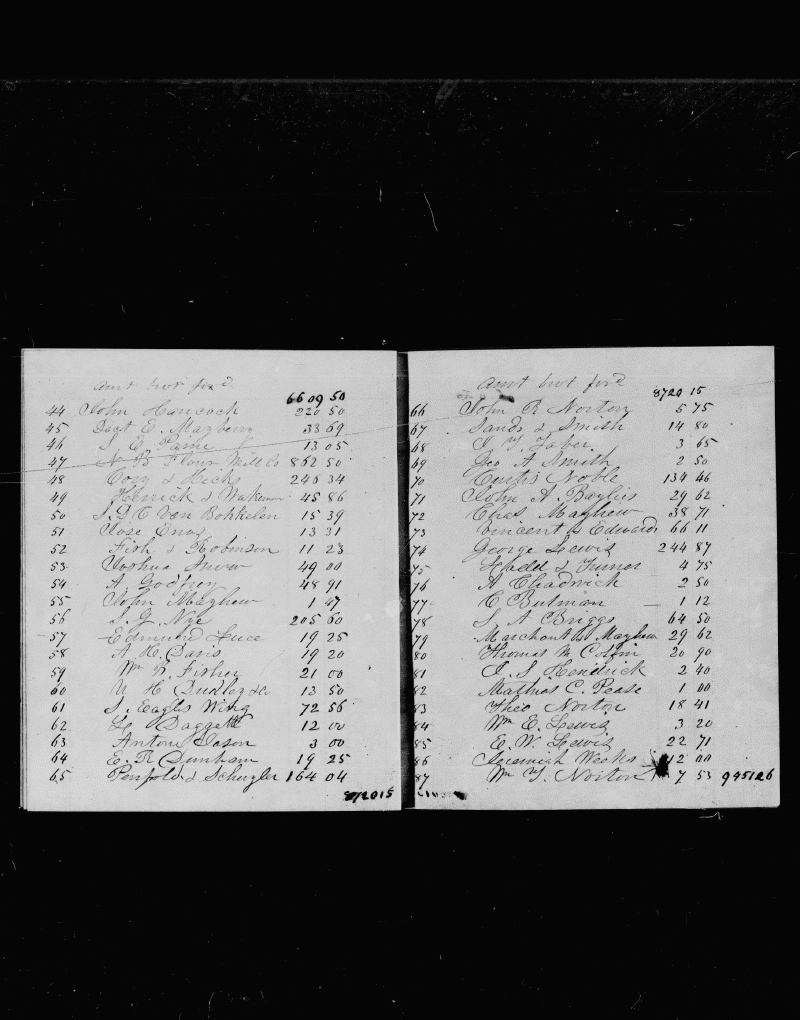 Amt brot ford 66 09 50
44 John Hancock 220 50
45 D. Mayberry 33 69
46 13 05
47 N B Flour Mill Co 862 50
48 Cory & Hicks 246 34
49 Herrick & 45 86
50 Van Bokkelen 15 39
51 Jose 13 31
52 Fish & Robinson 11 23
53 Joshua 49 00
54 A. Godfrey 48 91
55 John Mayhew 1 47
56 Nye 205 60
57 Edmund Luce 19 25
58 A H. Davis 19 20
59 Wm Fisher 21 00
60 H Dudley & Co 13 50
61 S. Eagles Wing 72 56
62 Daggett 12 00
63 Antone 3 00
64 E. R Dunham 19 25
65 Penfold & Schuyler 164 04
872015
Amt brot ford 8720 15
66 John R Norton 5 75
67 Sands & Smith 14 80
68 Taber 3 65
69 Geo A Smith 2 50
70 Curtis Noble 134 46
71 John A. Baylies 29 62
72 Chas Mayhew 38 71
73 Vincent & Edwards 66 11
74 George Lewis 244 87
75 & Turner 4 75
76 A Chadwick 2 50
77 C Butman 1 12
78 S A Briggs 64 50
79 Marchant Mayhew 29 62
80 Thomas 20 90
81 S Hendrick 2 40
82 Matthas C. Pease 1 00
83 Theo Norton 18 41
84 Wm E. Lewis 3 20
85 E. W. Lewis 22 71
86 Jeremiah Weeks 12 00
87 Wm Y. Norton 7 53 945126